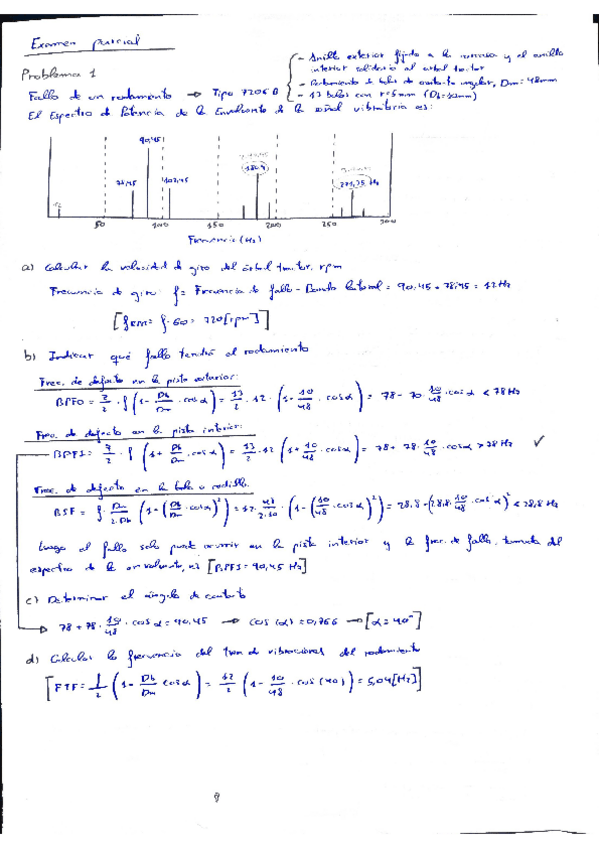 Examen parcial
- Anillo exterior fijado a la carcasa y el anillo
interior solidario al árbol tractor
Problema 1
- Rodamiento de bolas de contacto angular, Dm = 48mm
Fallo de un rodamiento → Tipo 7206 B
- 13 bolas con r=5mm (Db=10mm)
El Espectro de Potencia de la Envolvente de la señal vibratoria es:
90,45
78,45
102,45
180,9
271,35 Hz
12
50 100 150 200 250 300
Frecuencia (Hz)
a) Calcular la velocidad de giro del árbol tractor, rpm
Frecuencia de giro: f = Frecuencia de fallo - Banda lateral = 90,45 - 78,45 = 12 Hz
[f RPM = f · 60 = 720 [rpm]]
b) Indicar qué fallo tendrá el rodamiento
Frec. de defecto en la pista exterior:
BPFO = Z/2 · f (1 - Db/Dm · cos α) = 13/2 · 12 · (1 - 10/48 · cos α) = 78 - 70 · 10/48 · cos α < 78 Hz
Frec. de defecto en la pista interior:
BPFI = Z/2 · f (1 + Db/Dm · cos α) = 13/2 · 12 (1 + 10/48 · cos α) = 78 + 78 · 10/48 · cos α > 78 Hz ✓
Frec. de defecto en la bola o rodillo:
BSF = f · Dm/2·Db (1 - (Db/Dm · cos α)²) = 12 · 48/2·10 · (1 - (10/48 · cos α)²) = 28,8 - (28,8 · 10/48 · cos α)² < 28,8 Hz
Luego el fallo solo puede ocurrir en la pista interior y la frec. de fallo, tomada del
espectro de la envolvente, es [BPFI = 90,45 Hz]
c) Determinar el ángulo de contacto
78 + 78 · 10/48 · cos α = 90,45 → cos (α) = 0,766 → [α = 40°]
d) Calcular la frecuencia del tren de vibraciones del rodamiento
[FTF = f/2 (1 - Db/Dm cos α) = 12/2 (1 - 10/48 · cos (40)) = 5,04 [Hz]]